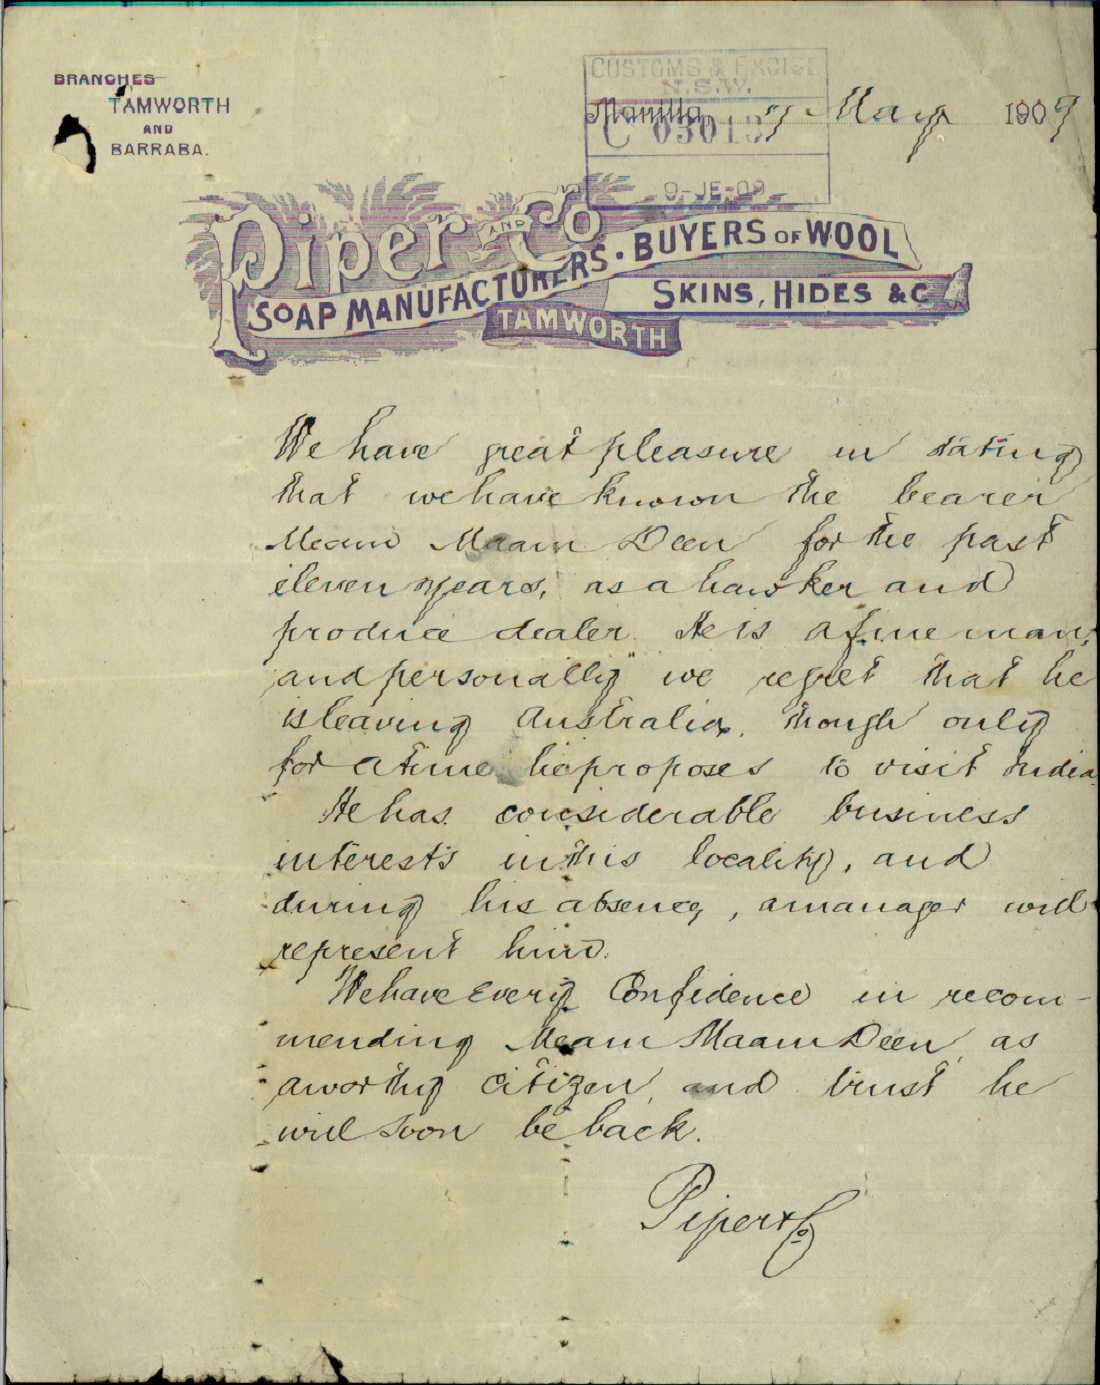 BRANCHES
TAMWORTH
AND
BARRABA.
CUSTOMS & EXCISE
N.S.W.
C 03013
9-JE-09
Manilla, 7 May 1909
Piper AND Co
SOAP MANUFACTURERS · BUYERS OF WOOL
SKINS, HIDES & C
TAMWORTH
We have great pleasure in stating
that we have known the bearer
Meam Maam Deen for the past
eleven years, as a hawker and
produce dealer. He is a fine man,
and personally we regret that he
is leaving Australia, though only
for a time he proposes to visit India
He has considerable business
interests in this locality, and
during his absence, a manager will
represent him.
We have every Confidence in recom-
mending Meam Maam Deen, as
a worthy citizen, and trust he
will soon be back.
Piper & Co